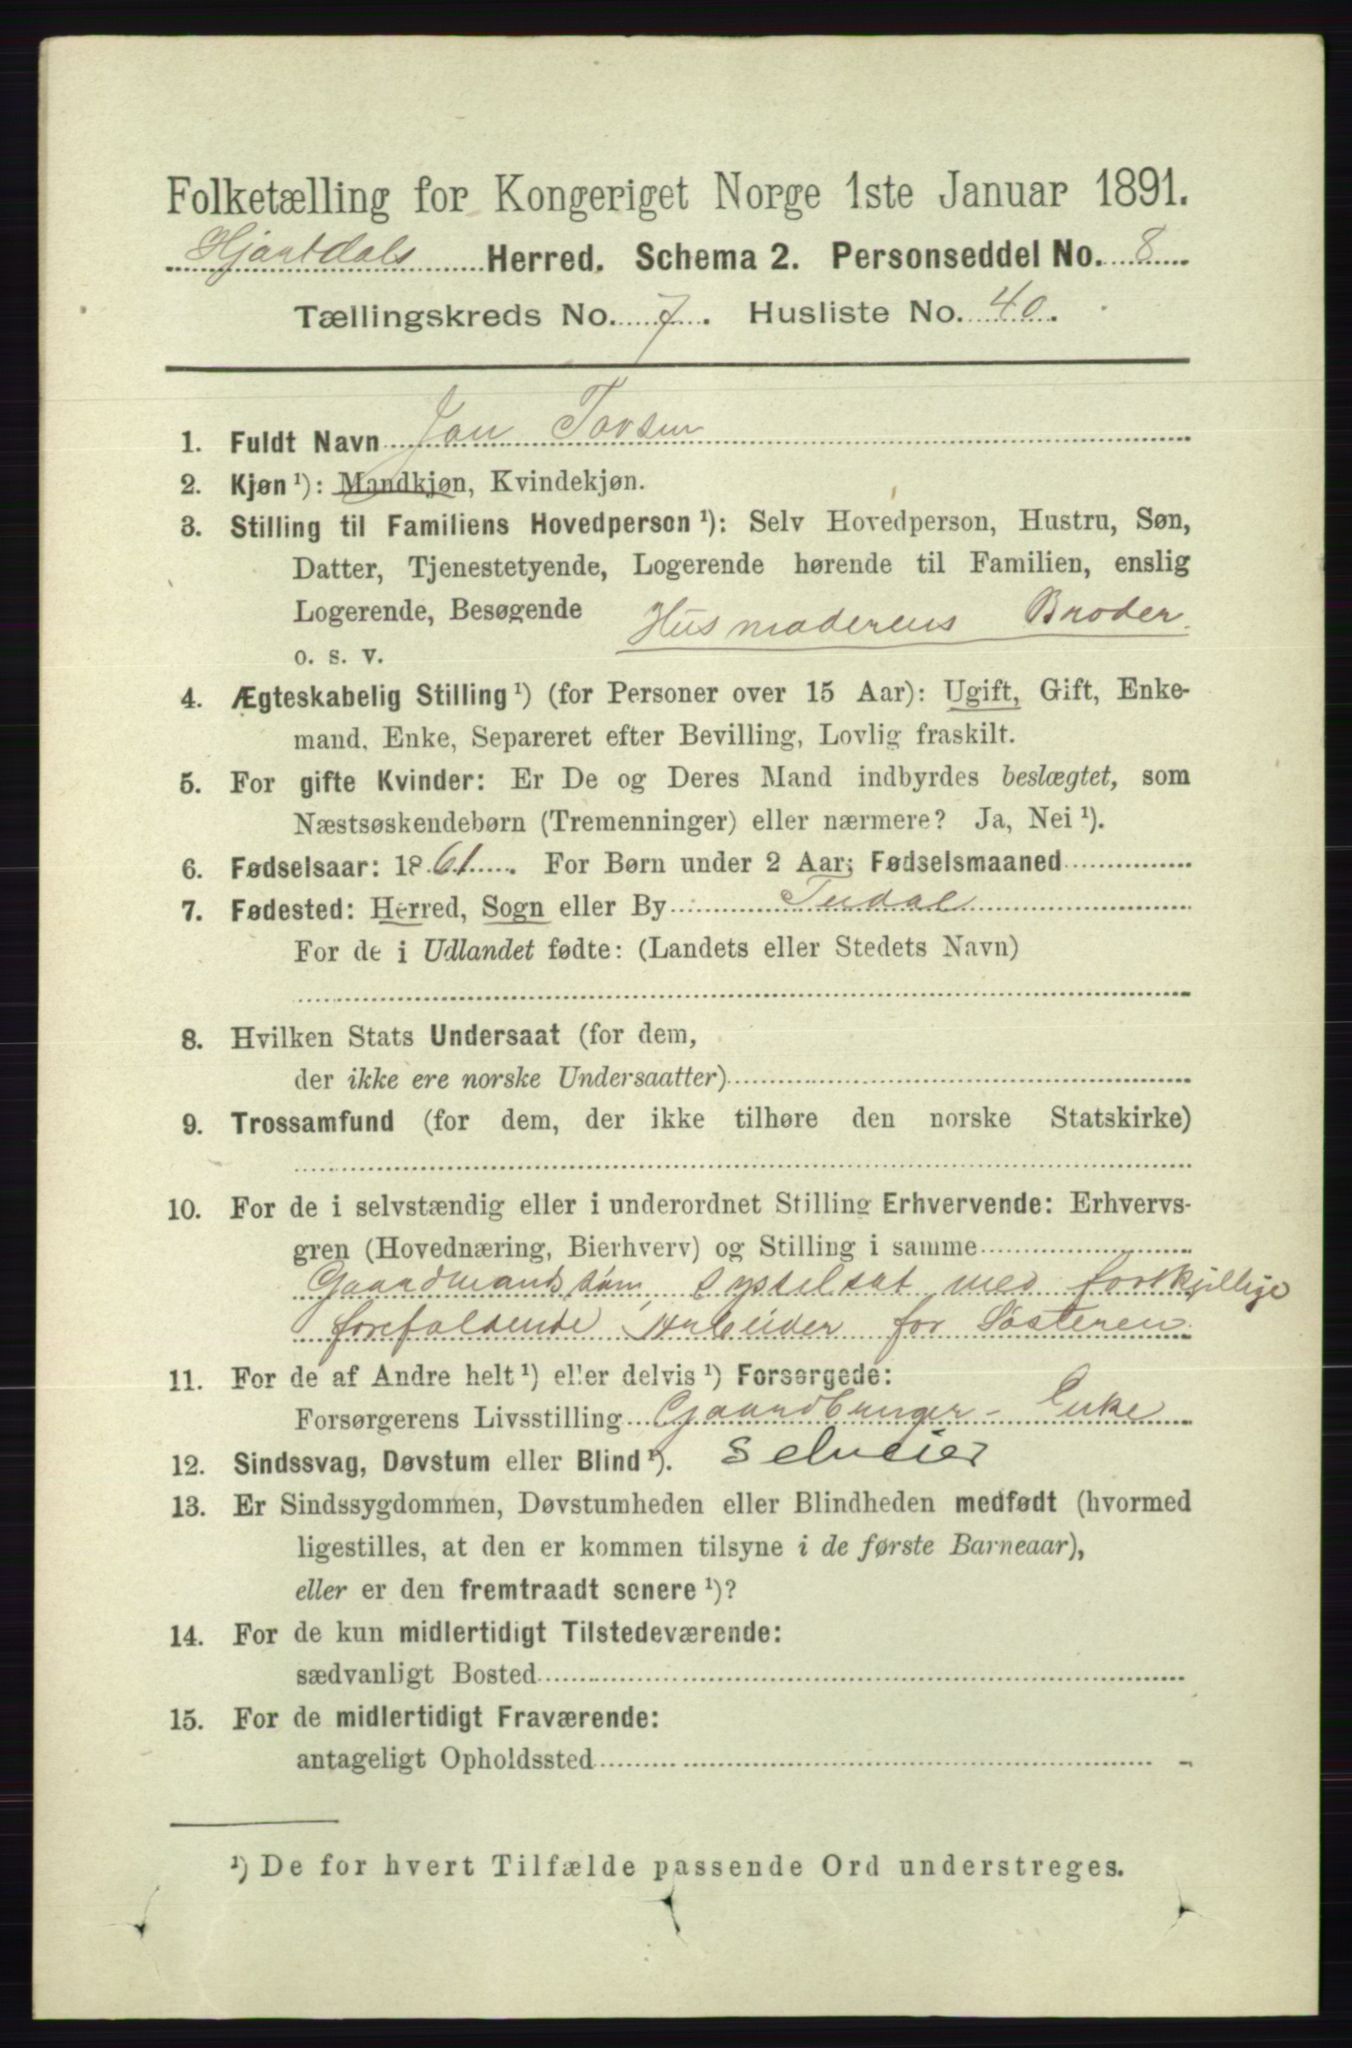 Folketælling for Kongeriget Norge 1ste Januar 1891.
Hjartdals Herred. Schema 2. Personseddel No. 8
Tællingskreds No. 7. Husliste No. 40.
1. Fuldt Navn Jon Tovsen
2. Kjøn ¹): Mandkjøn, Kvindekjøn.
3. Stilling til Familiens Hovedperson ¹): Selv Hovedperson, Hustru, Søn,
Datter, Tjenestetyende, Logerende hørende til Familien, enslig
Logerende, Besøgende Husmoderens Broder.
o. s. v.
4. Ægteskabelig Stilling ¹) (for Personer over 15 Aar): Ugift, Gift, Enke-
mand, Enke, Separeret efter Bevilling, Lovlig fraskilt.
5. For gifte Kvinder: Er De og Deres Mand indbyrdes beslægtet, som
Næstsøskendebørn (Tremenninger) eller nærmere? Ja, Nei ¹).
6. Fødselsaar: 1861. For Børn under 2 Aar; Fødselsmaaned
7. Fødested: Herred, Sogn eller By Tudal
For de i Udlandet fødte: (Landets eller Stedets Navn)
8. Hvilken Stats Undersaat (for dem,
der ikke ere norske Undersaatter)
9. Trossamfund (for dem, der ikke tilhøre den norske Statskirke)
10. For de i selvstændig eller i underordnet Stilling Erhvervende: Erhvervs-
gren (Hovednæring, Bierhverv) og Stilling i samme
Gaardmandssøn, sysselsat med forskjellige
forefaldende Arbeider for Søsteren
11. For de af Andre helt ¹) eller delvis ¹) Forsørgede:
Forsørgerens Livsstilling Gaardbruger-Enke
12. Sindssvag, Døvstum eller Blind ¹). Selveier
13. Er Sindssygdommen, Døvstumheden eller Blindheden medfødt (hvormed
ligestilles, at den er kommen tilsyne i de første Barneaar),
eller er den fremtraadt senere ¹)?
14. For de kun midlertidigt Tilstedeværende:
sædvanligt Bosted
15. For de midlertidigt Fraværende:
antageligt Opholdssted
¹) De for hvert Tilfælde passende Ord understreges.